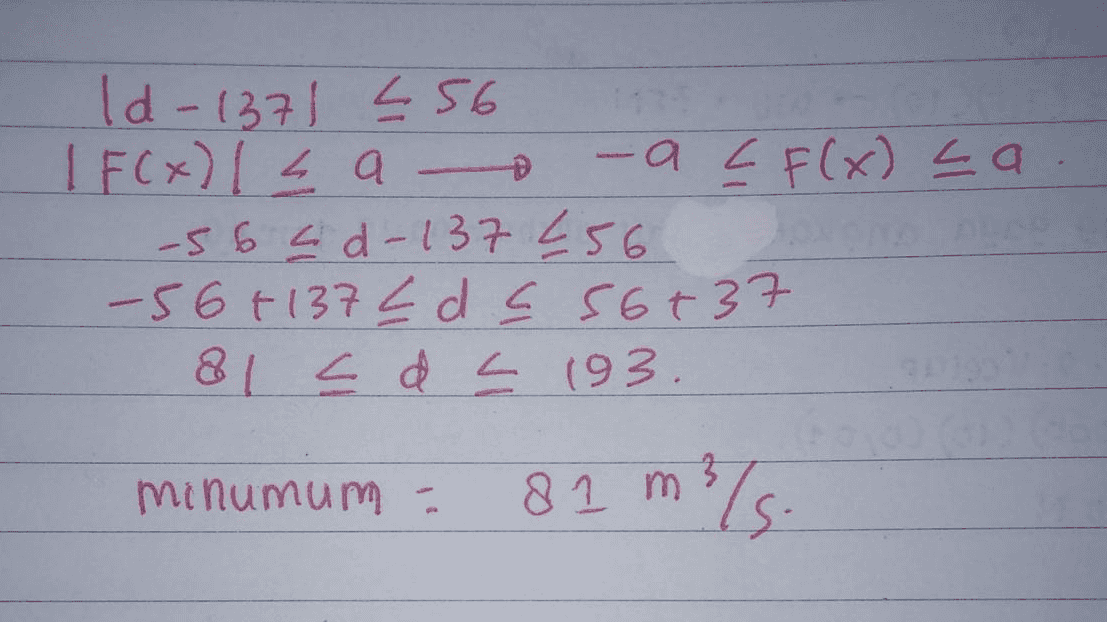 |d - 137| ≤ 56
|F(x)| ≤ a → -a ≤ F(x) ≤ a.
-56 ≤ d - 137 ≤ 56
-56 + 137 ≤ d ≤ 56 + 37
81 ≤ d ≤ 193.
minumum = 81 m³/s.